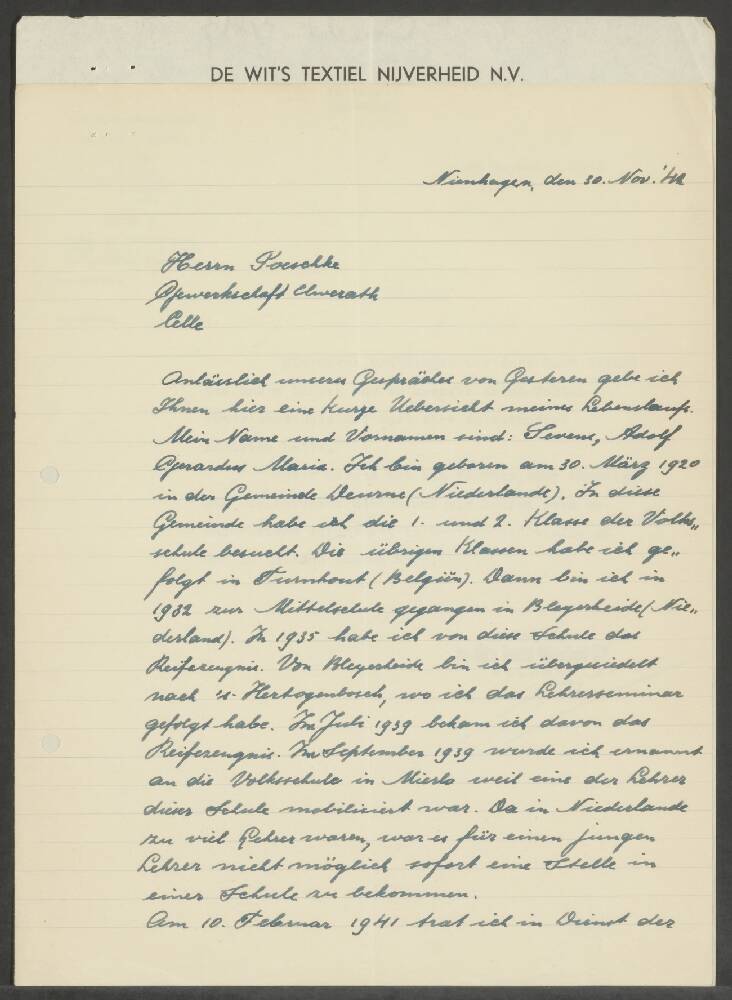 DE WIT'S TEXTIEL NIJVERHEID N.V.
Nienhagen, den 30. Nov. '42
Herrn Poeschke
Gewerkschaft Elwerath
Celle
Anlässlich unseres Gespräches von Gesteren gebe ich
Ihnen hier eine kurze Uebersicht meines Lebenslaufs.
Mein Name und Vornamen sind: Sevens, Adolf
Gerardus Maria. Ich bin geboren am 30. März 1920
in der Gemeinde Deurne (Niederlande). In diese
Gemeinde habe ich die 1. und 2. Klasse der Volks„
schule besucht. Die übrigen Klassen habe ich ge„
folgt in Turnhout (Belgiën). Dann bin ich in
1932 zur Mittelschule gegangen in Bleyerheide (Nie„
derland). In 1935 habe ich von diese Schule das
Reifezeugnis. Von Bleyerheide bin ich übergesiedelt
nach 's-Hertogenbosch, wo ich das Lehrerseminar
gefolgt habe. Im Juli 1939 bekam ich davon das
Reifezeugnis. Im September 1939 wurde ich ernannt
an die Volksschule in Mierlo weil eine der Lehrer
dieser Schule mobilisiert war. Da in Niederlande
zu viel Lehrer waren, war es für einen jungen
Lehrer nicht möglich sofort eine Stelle in
einer Schule zu bekommen.
Am 10. Februar 1941 trat ich in Dienst der